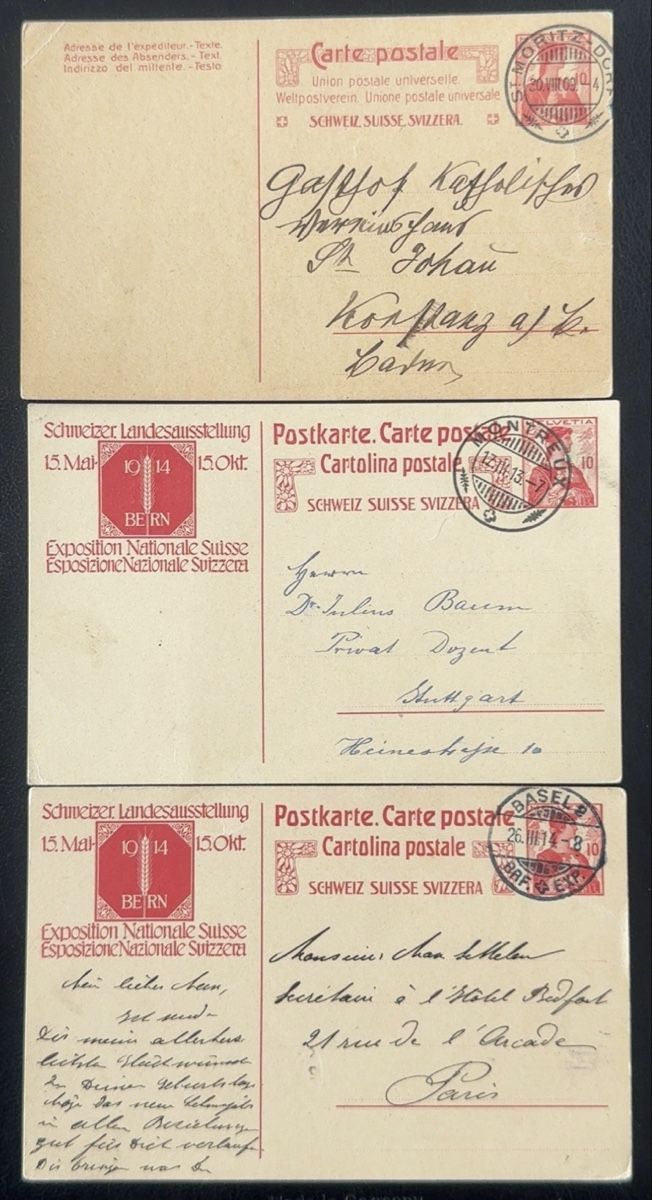 Adresse de l'expéditeur.-Texte.
Adresse des Absenders.-Text.
Indirizzo del mittente.-Testo.
Carte postale
Union postale universelle.
Weltpostverein. Unione postale universale
SCHWEIZ. SUISSE. SVIZZERA.
ST MORITZ-DORF
20.VIII.09.-4
10
Gasthof Katholisches
Vereinshaus
St. Johann
Konstanz a/ B.
Baden
Schweizer. Landesausstellung
15. Mai- 1914 15. Okt.
BERN
Exposition Nationale Suisse
Esposizione Nazionale Svizzera
Postkarte. Carte postale
Cartolina postale
SCHWEIZ SUISSE SVIZZERA
MONTREUX
13.-7
HELVETIA
10
Herrn
Dr. Julius Baum
Privat Dozent
Stuttgart
Heinestrasse 10
Schweizer. Landesausstellung
15. Mai- 1914 15. Okt.
BERN
Exposition Nationale Suisse
Esposizione Nazionale Svizzera
Postkarte. Carte postale
Cartolina postale
SCHWEIZ SUISSE SVIZZERA
BASEL 2
26.III.14.-8
BRF. EXP.
10
Monsieur Max
Secrétaire à l'Hôtel Bedford
21 rue de l'Arcade
Paris
Mein lieber
Dir meine allerherz
lichsten Glückwünsche
zu Deinem Geburtstag
Möge das neue Lebensjahr
in allen Beziehungen
gut für Dich verlaufen
Dir bringen was